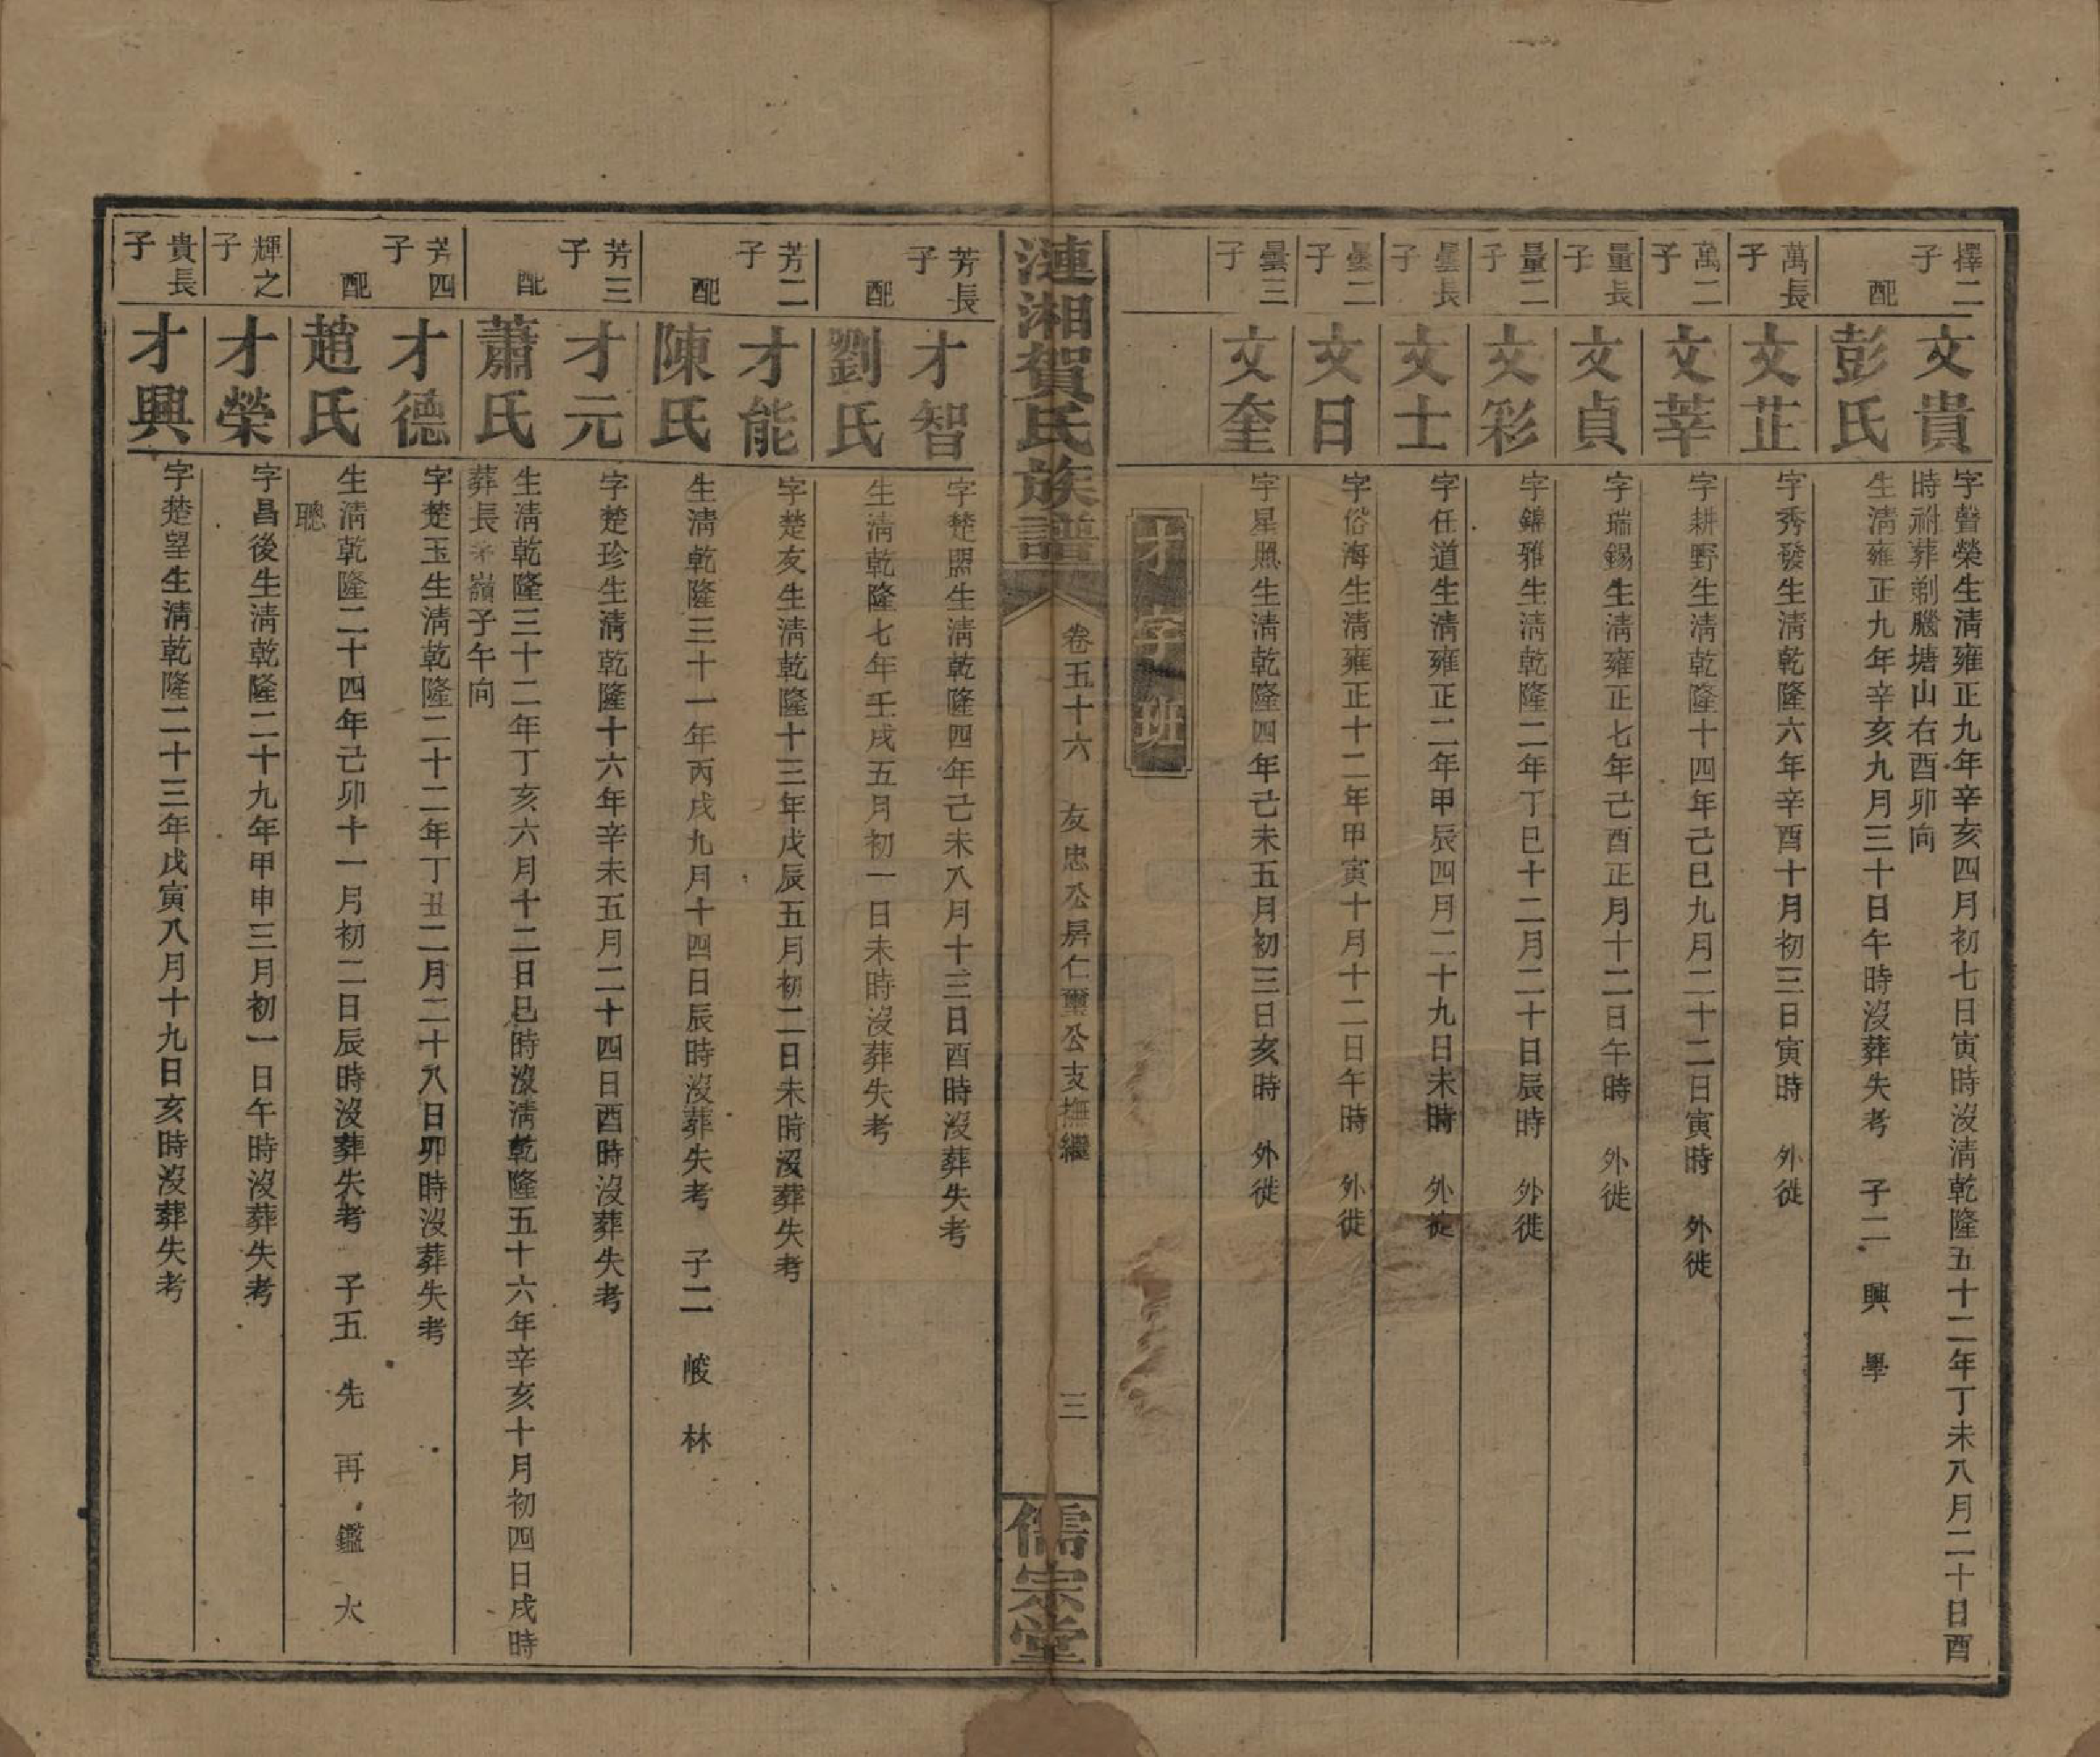 擇二子
文貴
字聲榮生清雍正九年辛亥四月初七日寅時沒清乾隆五十二年丁未八月二十日酉
時祔葬剃腦塘山右酉卯向
配
彭氏
生清雍正九年辛亥九月三十日午時沒葬失考 子二 興 學
萬長子
文芷
字秀發生清乾隆六年辛酉十月初三日寅時 外徙
萬二子
文莘
字耕野生清乾隆十四年己巳九月二十二日寅時 外徙
量長子
文貞
字瑞錫生清雍正七年己酉正月十二日午時 外徙
量二子
文彩
字錦雅生清乾隆二年丁巳十二月二十日辰時 外徙
曇長子
文士
字任道生清雍正二年甲辰四月二十九日未時 外徙
曇二子
文日
字俗海生清雍正十二年甲寅十月十二日午時 外徙
曇三子
文奎
字星照生清乾隆四年己未五月初三日亥時 外徙
才字班
漣湘賀氏族譜 卷五十六 友忠公房仁璽公支撫繼 三 儒宗堂
芳長子
才智
字楚盟生清乾隆四年己未八月十三日酉時沒葬失考
配
劉氏
生清乾隆七年壬戌五月初一日未時沒葬失考
芳二子
才能
字楚友生清乾隆十三年戊辰五月初二日未時沒葬失考
配
陳氏
生清乾隆三十一年丙戌九月十四日辰時沒葬失考 子二 峻 林
芳三子
才元
字楚珍生清乾隆十六年辛未五月二十四日酉時沒葬失考
配
蕭氏
生清乾隆三十二年丁亥六月十二日巳時沒清乾隆五十六年辛亥十月初四日戌時
葬長茅嶺子午向
芳四子
才德
字楚玉生清乾隆二十二年丁丑二月二十八日卯時沒葬失考
配
趙氏
生清乾隆二十四年己卯十一月初二日辰時沒葬失考 子五 先 再 鑑 大
聰
輝之子
才榮
字昌後生清乾隆二十九年甲申三月初一日午時沒葬失考
貴長子
才興
字楚望生清乾隆二十三年戊寅八月十九日亥時沒葬失考